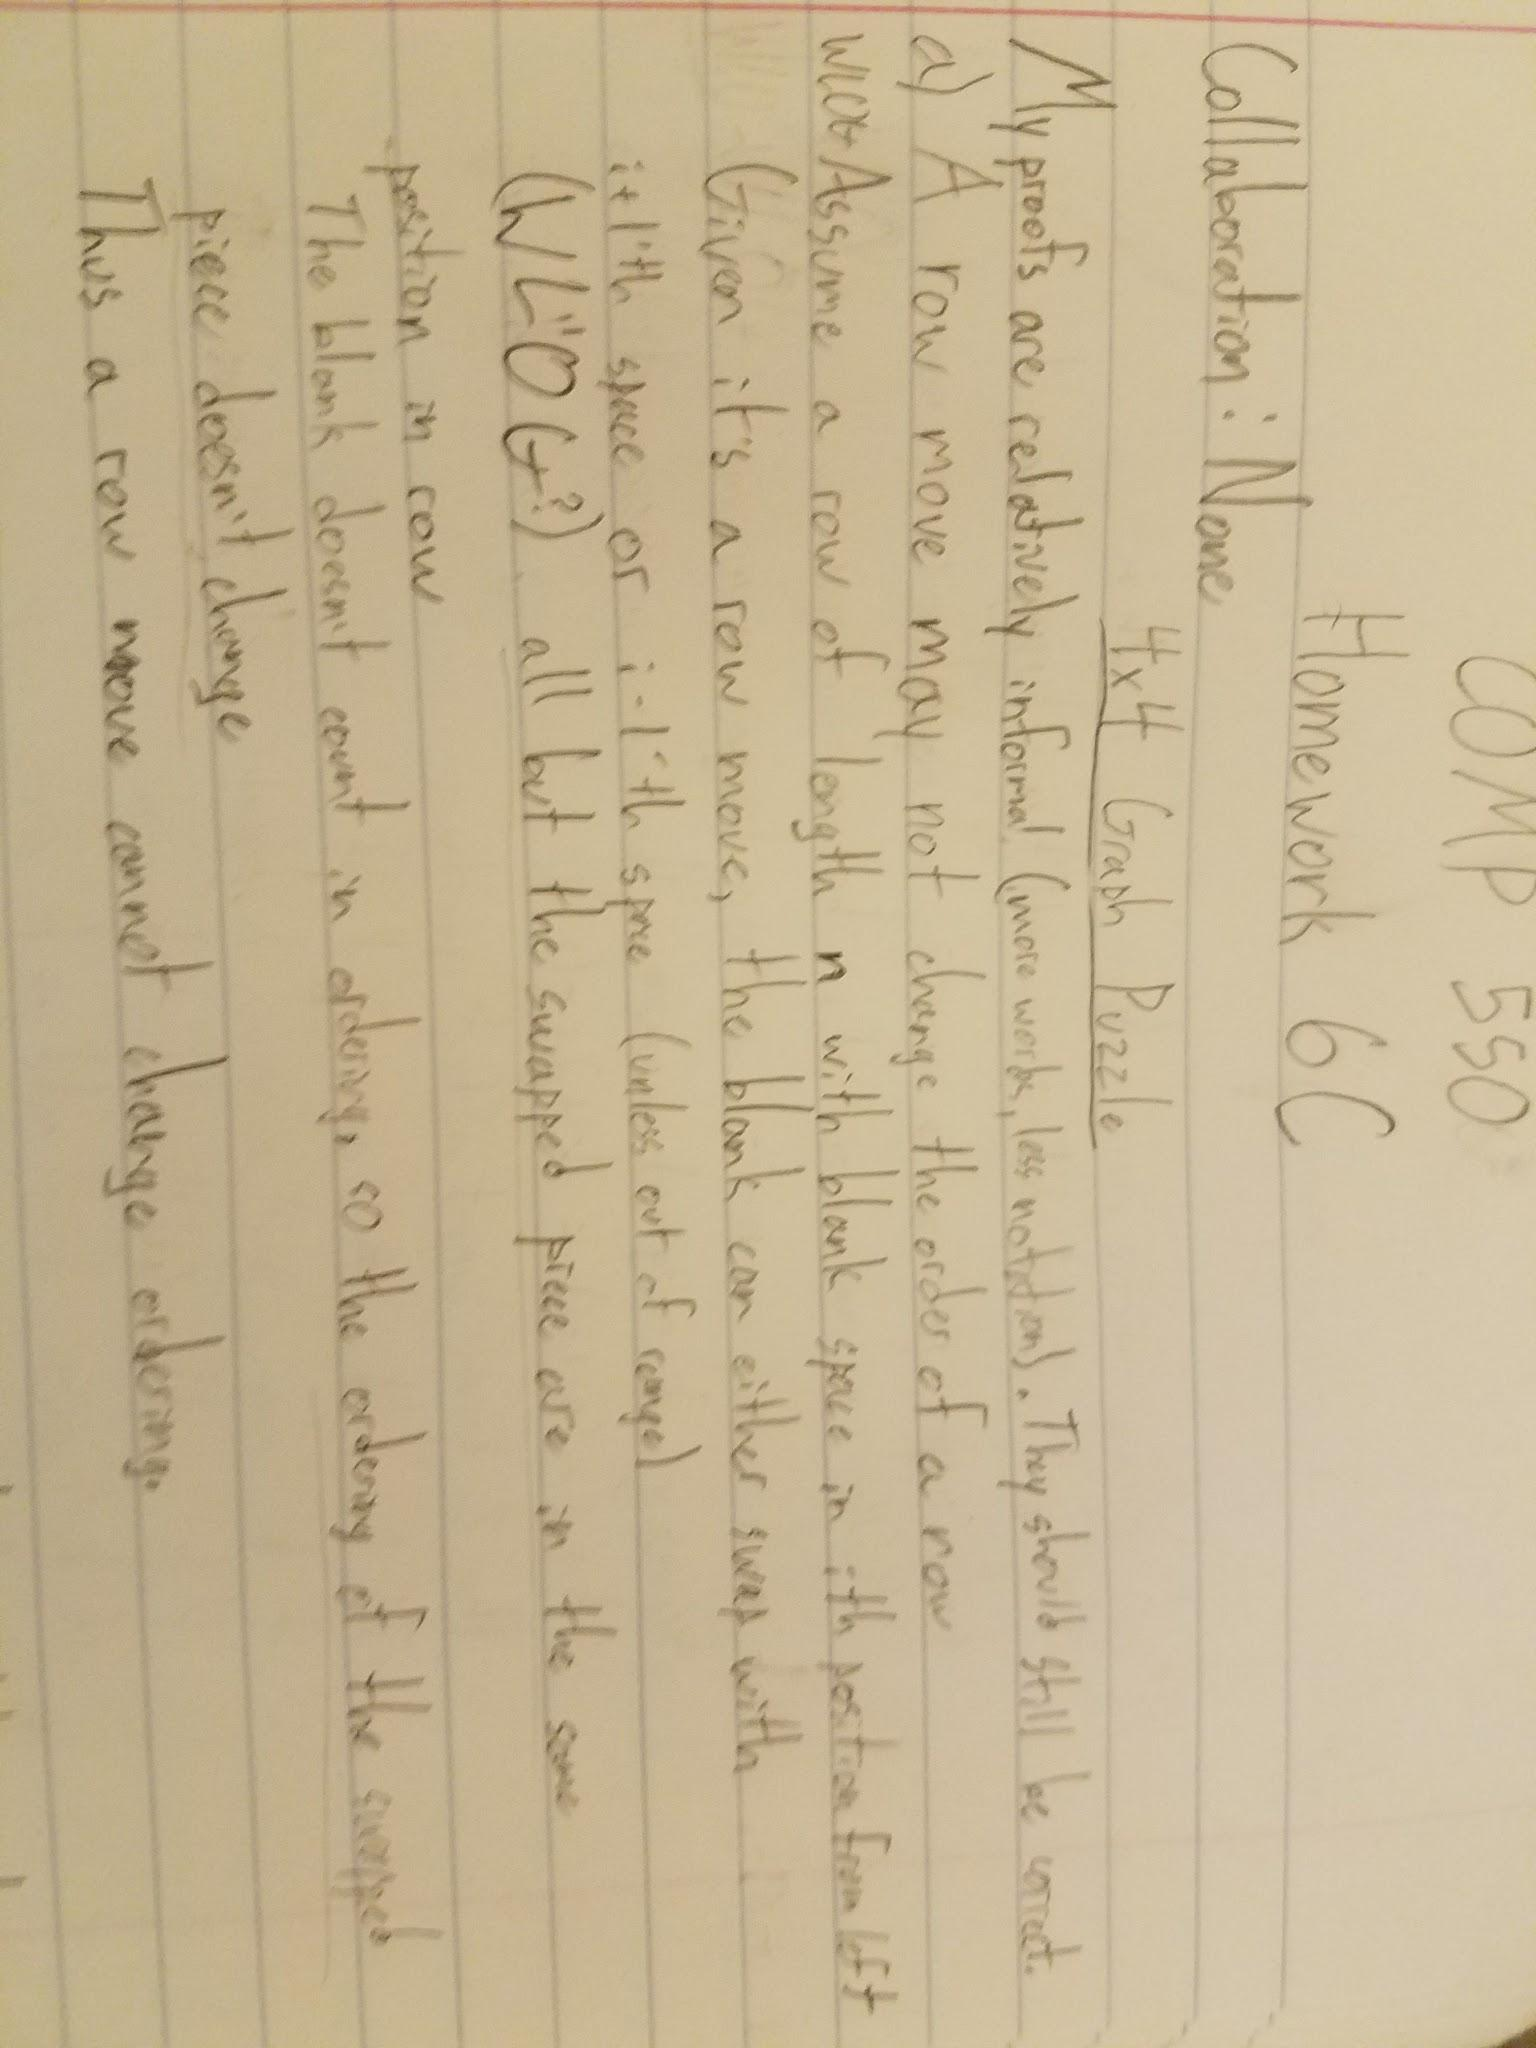 COMP 550
Homework 6C
Collaboration: None
4x4 Graph Puzzle
My proofs are relatively informal (more words, less notation). They should still be correct.
a) A row move may not change the order of a row
WLOG Assume a row of length n with blank space in ith position from left
(Given it's a row move, the blank can either swap with
i+1'th space or i-1'th space (unless out of range)
(WL"OG?) all but the swapped piece are in the same
position in row
The blank doesn't count in ordering, so the ordering of the swapped
piece doesn't change
Thus a row move cannot change ordering.